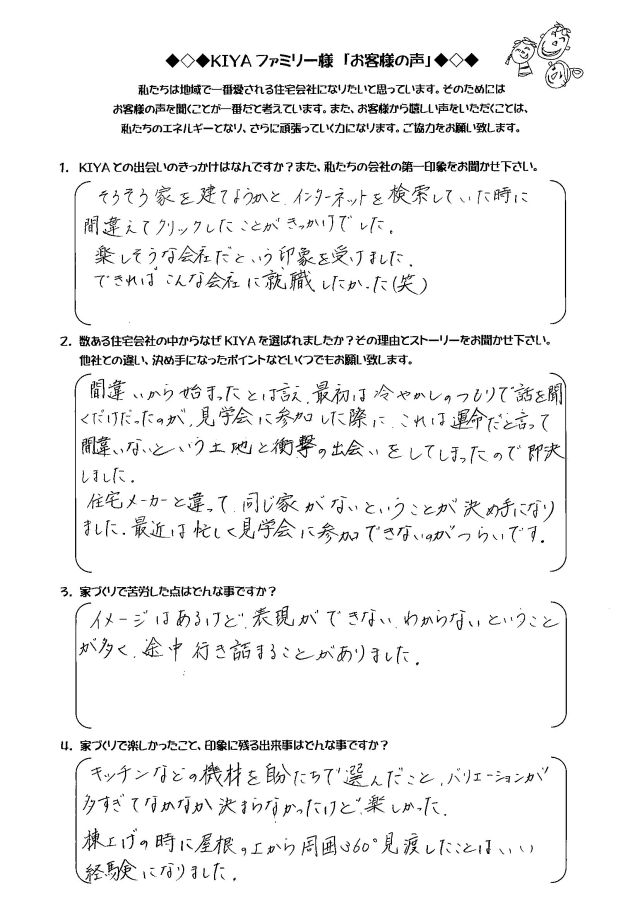 ◆◇◆KIYAファミリー様「お客様の声」◆◇◆
私たちは地域で一番愛される住宅会社になりたいと思っています。そのためには
お客様の声を聞くことが一番だと考えています。また、お客様から嬉しい声をいただくことは、
私たちのエネルギーとなり、さらに頑張っていく力になります。ご協力をお願い致します。
1. KIYAとの出会いのきっかけはなんですか？また、私たちの会社の第一印象をお聞かせ下さい。
そろそろ家を建てようかと、インターネットを検索していた時に
間違えてクリックしたことがきっかけでした。
楽しそうな会社だという印象を受けました。
できればこんな会社に就職したかった(笑)
2. 数ある住宅会社の中からなぜKIYAを選ばれましたか？その理由とストーリーをお聞かせ下さい。
他社との違い、決め手になったポイントなどいくつでもお願い致します。
間違いから始まったとは言え、最初は冷やかしのつもりで話を聞
くだけだったのが、見学会に参加した際に、これは運命だと言って
間違いないという土地と衝撃の出会いをしてしまったので即決
しました。
住宅メーカーと違って、同じ家がないということが決め手になり
ました。最近は忙しく見学会に参加できないのがつらいです。
3. 家づくりで苦労した点はどんな事ですか？
イメージはあるけど、表現ができない、わからないということ
が多く、途中行き詰まることがありました。
4. 家づくりで楽しかったこと、印象に残る出来事はどんな事ですか？
キッチンなどの機材を自分たちで選んだこと、バリエーションが
多すぎてなかなか決まらなかったけど、楽しかった。
棟上げの時に屋根の上から周囲360°見渡したことはいい
経験になりました。